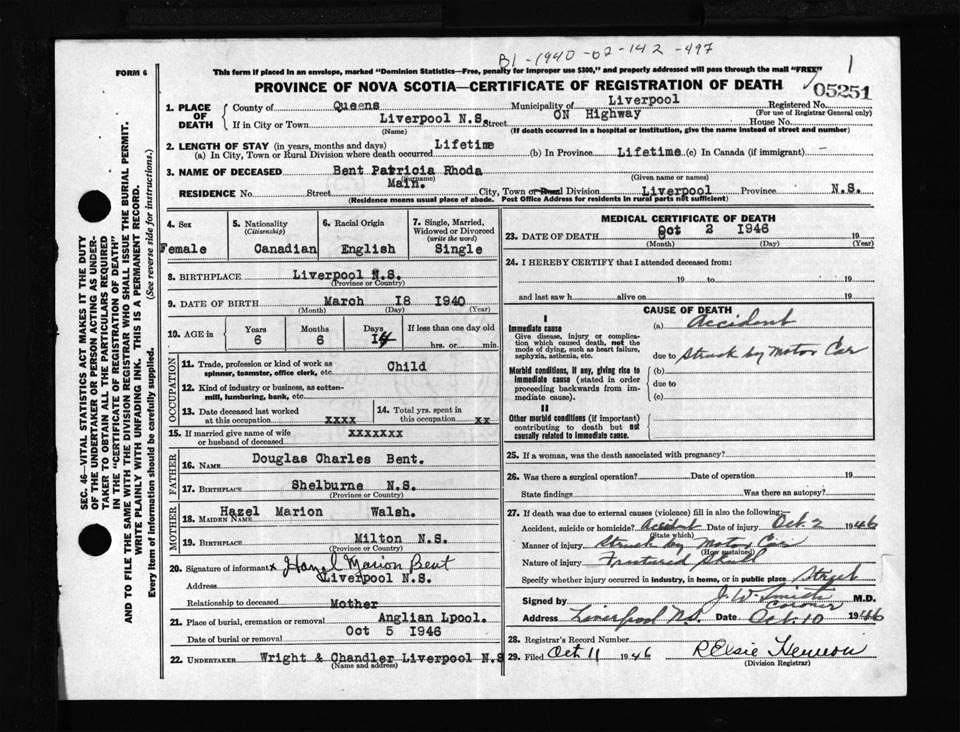 B1-1940-02-142-497
1
FORM 6
This form if placed in an envelope, marked "Dominion Statistics—Free, penalty for improper use $300," and properly addressed will pass through the mail "FREE"
PROVINCE OF NOVA SCOTIA—CERTIFICATE OF REGISTRATION OF DEATH
05251
1. PLACE OF DEATH
County of Queens Municipality of Liverpool Registered No.
(For use of Registrar General only)
If in City or Town Liverpool N.S. Street ON Highway House No.
(Name) (If death occurred in a hospital or institution, give the name instead of street and number)
2. LENGTH OF STAY (in years, months and days)
(a) In City, Town or Rural Division where death occurred Lifetime (b) In Province Lifetime (c) In Canada (if immigrant) -
3. NAME OF DECEASED Bent Patricia Rhoda
(Surname) (Given name or names)
RESIDENCE No. Street Main. City, Town or Rural Division Liverpool Province N.S.
(Residence means usual place of abode. Post Office Address for residents in rural parts not sufficient)
4. Sex
Female
5. Nationality
(Citizenship)
Canadian
6. Racial Origin
English
7. Single, Married, Widowed or Divorced
(write the word)
Single
8. BIRTHPLACE Liverpool N.S.
(Province or Country)
9. DATE OF BIRTH March 18 1940
(Month) (Day) (Year)
10. AGE in
Years
6
Months
6
Days
14
If less than one day old
hrs. or min.
OCCUPATION
11. Trade, profession or kind of work as
spinner, teamster, office clerk, etc. Child
12. Kind of industry or business, as cotton-
mill, lumbering, bank, etc.
13. Date deceased last worked
at this occupation xxxx
14. Total yrs. spent in
this occupation xx
15. If married give name of wife
or husband of deceased xxxxxxx
FATHER
16. NAME Douglas Charles Bent.
17. BIRTHPLACE Shelburne N.S.
(Province or Country)
MOTHER
18. MAIDEN NAME Hazel Marion Walsh.
19. BIRTHPLACE Milton N.S.
(Province or Country)
20. Signature of informant x Hazel Marion Bent
Address Liverpool N.S.
Relationship to deceased Mother
21. Place of burial, cremation or removal Anglian Lpool.
Date of burial or removal Oct 5 1946
22. UNDERTAKER Wright & Chandler Liverpool N.S
(Name and address)
MEDICAL CERTIFICATE OF DEATH
23. DATE OF DEATH Oct 2 1946 19
(Month) (Day) (Year)
24. I HEREBY CERTIFY that I attended deceased from:
19 to 19
and last saw h alive on 19
CAUSE OF DEATH
I
Immediate cause
Give disease, injury or complica-
tion which caused death, not the
mode of dying, such as heart failure,
asphyxia, asthenia, etc.
(a) Accident
due to Struck by Motor Car
Morbid conditions, if any, giving rise to
immediate cause (stated in order
proceeding backwards from im-
mediate cause).
(b)
due to
(c)
II
Other morbid conditions (if important)
contributing to death but not
causally related to immediate cause.
25. If a woman, was the death associated with pregnancy?
26. Was there a surgical operation? Date of operation 19
State findings Was there an autopsy?
27. If death was due to external causes (violence) fill in also the following:
Accident, suicide or homicide? Accident Date of injury Oct. 2 1946
(State which)
Manner of injury Struck by Motor Car
(How sustained)
Nature of injury Fractured Skull
Specify whether injury occurred in industry, in home, or in public place Street
Signed by J. W. Smith M.D.
Coroner
Address Liverpool N.S. Date Oct. 10 1946
28. Registrar's Record Number
29. Filed Oct 11 1946
(Division Registrar)
SEC. 46—VITAL STATISTICS ACT MAKES IT THE DUTY
OF THE UNDERTAKER OR PERSON ACTING AS UNDER-
TAKER TO OBTAIN ALL THE PARTICULARS REQUIRED
IN THE "CERTIFICATE OF REGISTRATION OF DEATH"
AND TO FILE THE SAME WITH THE DIVISION REGISTRAR WHO SHALL ISSUE THE BURIAL PERMIT.
WRITE PLAINLY WITH UNFADING INK. THIS IS A PERMANENT RECORD.
Every item of information should be carefully supplied. (See reverse side for instructions.)